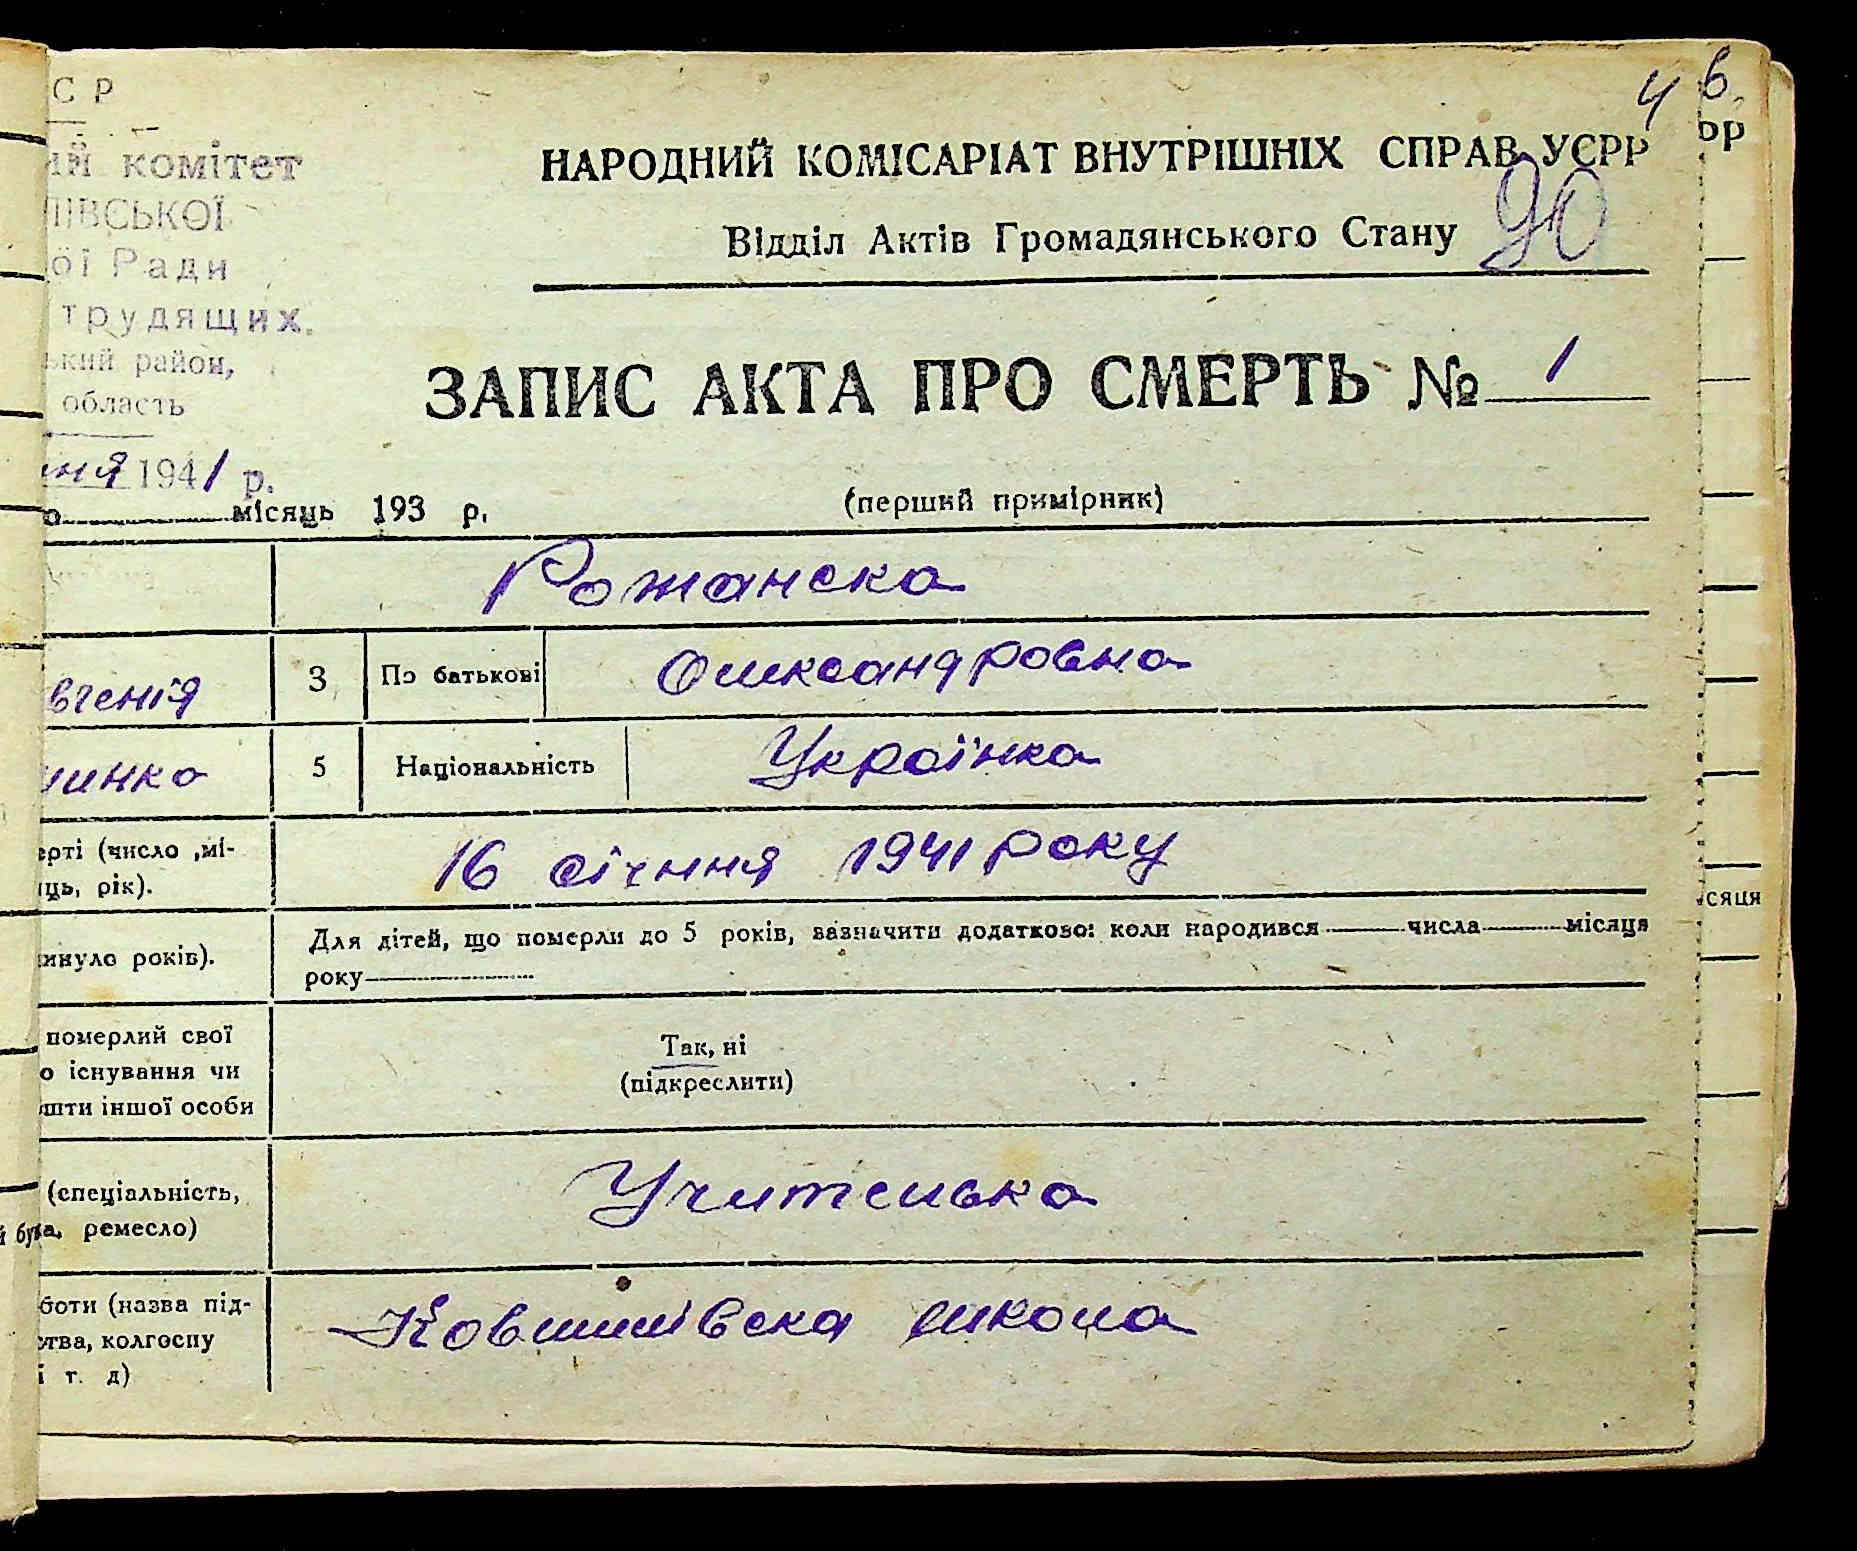 С Р
ий комітет
лівської
ої Ради
трудящих.
ький район,
область
ня 1941 р.
о місяць 193 р.
4
6
РР
НАРОДНИЙ КОМІСАРІАТ ВНУТРІШНІХ СПРАВ УСРР
Відділ Актів Громадянського Стану
90
ЗАПИС АКТА ПРО СМЕРТЬ № 1
(перший примірник)
Рожанска
вгенія 3 По батькові Олександровна
5 Національність Українка
ерті (число ,мі-
яць, рік).
16 січння 1941 року
сяця
инуло років).
Для дітей, що померли до 5 років, зазначити додатково: коли народився числа місяця
року
померлий свої
о існування чи
ошти іншої особи
Так, ні
(підкреслити)
(спеціальність,
ка, ремесло)
Учителька
боти (назва під-
ства, колгоспу
і т. д)
Ковшилівска школа